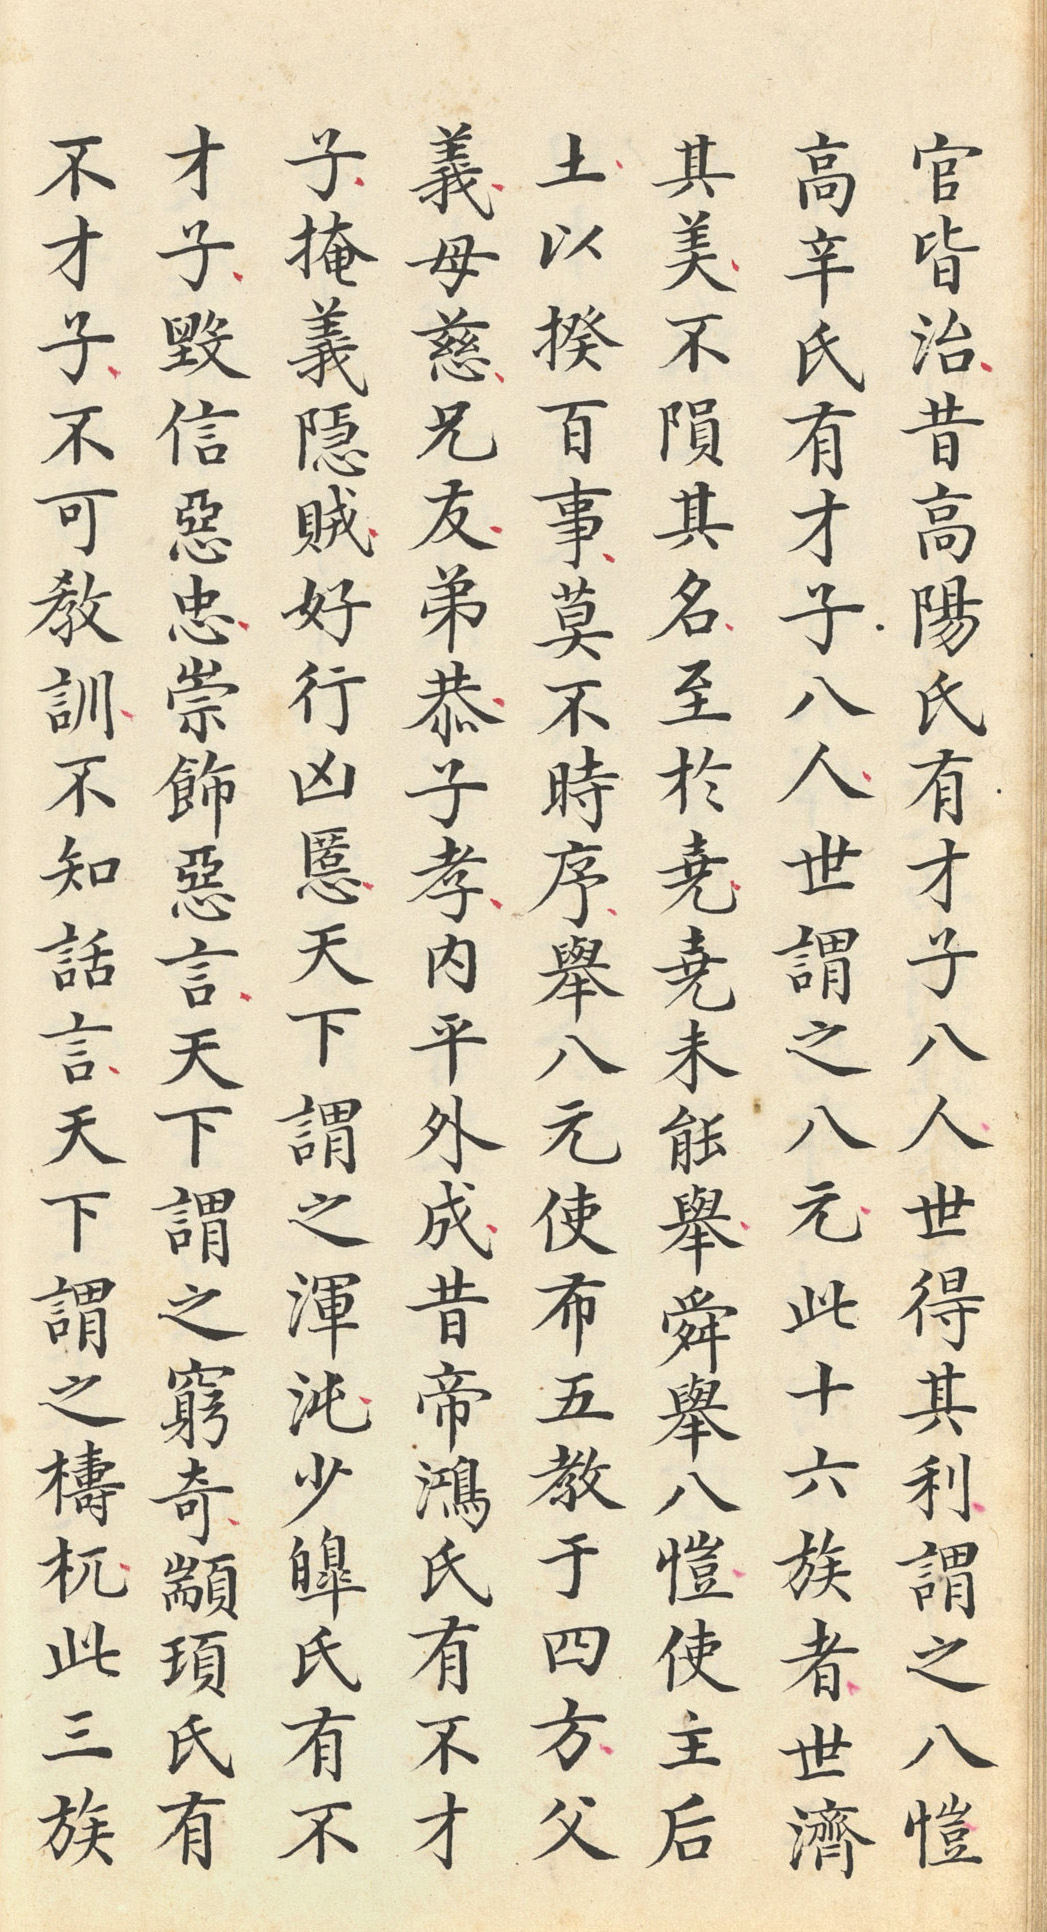 官皆治昔高陽氏有才子八人世得其利謂之八愷
高辛氏有才子八人世謂之八元此十六族者世濟
其美不隕其名至於堯堯未能舉舜舉八愷使主后
土以揆百事莫不時序舉八元使布五教于四方父
義母慈兄友弟恭子孝内平外成昔帝鴻氏有不才
子掩義隱賊好行凶慝天下謂之渾沌少皞氏有不
才子毀信惡忠崇飾惡言天下謂之窮奇顓頊氏有
不才子不可教訓不知話言天下謂之檮杌此三族